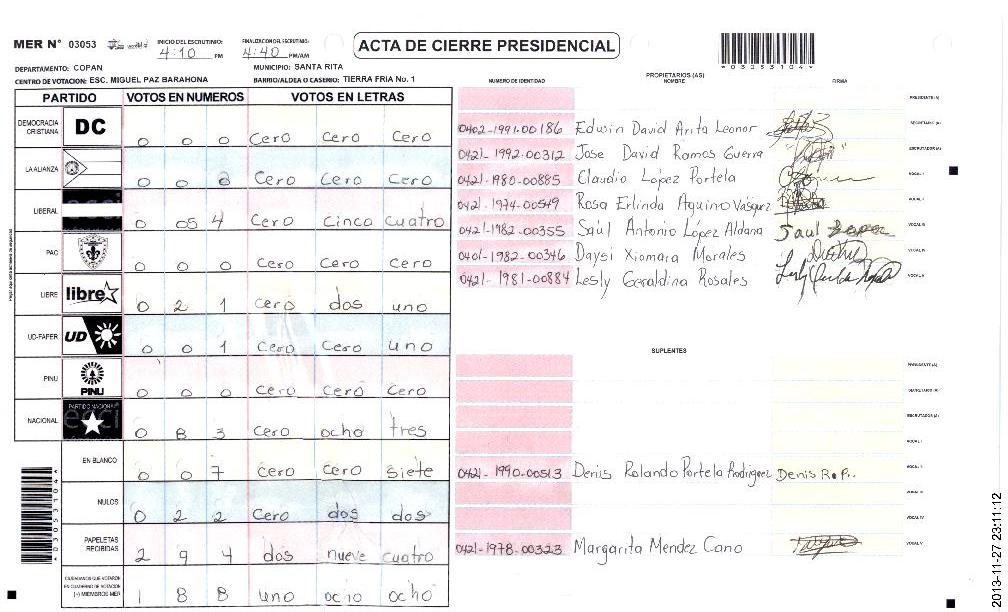 MER N° 03053 INICIO DEL ESCRUTINIO: 4:10 PM FINALIZACION DEL ESCRUTINIO: 4:40 PM/AM ACTA DE CIERRE PRESIDENCIAL
DEPARTAMENTO: COPAN MUNICIPIO: SANTA RITA
CENTRO DE VOTACION: ESC. MIGUEL PAZ BARAHONA BARRIO/ALDEA O CASERIO: TIERRA FRIA No. 1
PARTIDO VOTOS EN NUMEROS VOTOS EN LETRAS
DEMOCRACIA CRISTIANA DC 0 0 0 Cero Cero Cero
LA ALIANZA 0 0 0 Cero Cero Cero
LIBERAL 0 05 4 Cero Cinco Cuatro
PAC 0 0 0 Cero Cero Cero
LIBRE libre 0 2 1 Cero dos uno
UD-FAPER UD 0 0 1 Cero Cero uno
PINU PINU 0 0 0 Cero Cero Cero
NACIONAL PARTIDO NACIONAL 0 8 3 Cero ocho tres
EN BLANCO 0 0 7 Cero Cero Siete
NULOS 0 2 2 Cero dos dos
PAPELETAS RECIBIDAS 2 9 4 dos nueve cuatro
CIUDADANOS QUE VOTARON EN CUADERNO DE VOTACION (+) MIEMBROS MER 1 8 8 uno ocho ocho
PROPIETARIOS (AS)
NUMERO DE IDENTIDAD NOMBRE FIRMA
PRESIDENTE (A)
0402-1991-00186 Edwin David Arita Leonor SECRETARIO (A)
0421-1992-00312 Jose David Ramos Guerra ESCRUTADOR (A)
0421-1980-00885 Claudio López Portela VOCAL I
0421-1974-00549 Rosa Erlinda Aquino Vasquez VOCAL II
0421-1982-00355 Saúl Antonio López Aldana Saul VOCAL III
0401-1982-00346 Daysi Xiomara Morales VOCAL IV
0421-1981-00884 Lesly Geraldina Rosales VOCAL V
SUPLENTES
PRESIDENTE (A)
SECRETARIO (A)
ESCRUTADOR (A)
VOCAL I
0421-1990-00513 Denis Rolando Portela Rodriguez Denis R.P. VOCAL II
VOCAL III
VOCAL IV
0421-1978-00323 Margarita Mendez Cano VOCAL V
*03053104*
2013-11-27 23:11:12